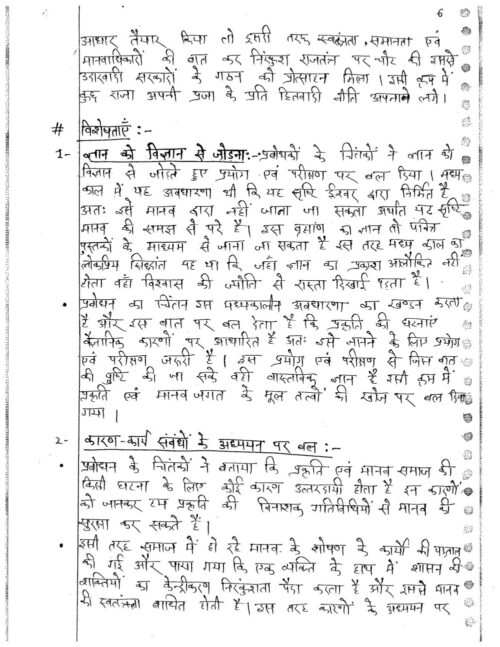 6
आधार तैयार किया तो इसी तरह स्वतंत्रता, समानता एवं
मानवाधिकारों की बात कर निरंकुश राजतंत्र पर चोट की इससे
उदारवादी सरकारों के गठन को प्रोत्साहन मिला। इसी क्रम में
कुछ राजा अपनी प्रजा के प्रति हितवादी नीति अपनाने लगे।
# विशेषताएँ :-
1- ज्ञान को विज्ञान से जोड़ना:- प्रबोधकों के चिंतकों ने ज्ञान को
विज्ञान से जोड़ते हुए प्रयोग एवं परीक्षण पर बल दिया। मध्य
काल में यह अवधारणा थी कि यह सृष्टि ईश्वर द्वारा निर्मित है
अतः इसे मानव द्वारा नहीं जाना जा सकता अर्थात यह सृष्टि
मानव की समझ से परे है। इस ब्रह्मांण का ज्ञान तो पवित्र
पुस्तकों के माध्यम से जाना जा सकता है इस तरह मध्य काल का
लोकप्रिय सिद्धांत यह था कि जहाँ ज्ञान का प्रकाश आलोकित नहीं
होता वहाँ विश्वास की ज्योति से रास्ता दिखाई पड़ता है।
• प्रबोधन का चिंतन इस मध्यकालीन अवधारणा का खण्डन करता
है और इस बात पर बल देता है कि प्रकृति की घटनाएं
वैज्ञानिक कारणों पर आधारित हैं अतः इसे जानने के लिए प्रयोग
एवं परीक्षण जरूरी है। इस प्रयोग एवं परीक्षण से जिस बात
की पुष्टि की जा सके वही वास्तविक ज्ञान है इसी क्रम में
प्रकृति एवं मानव जगत के मूल तत्वों की खोज पर बल दिया
गया।
2- कारण-कार्य संबंधों के अध्ययन पर बल :-
• प्रबोधन के चिंतकों ने बताया कि प्रकृति एवं मानव समाज की
किसी घटना के लिए कोई कारण उत्तरदायी होता है इन कारणों
को जानकर हम प्रकृति की विनाशक गतिविधियों से मानव की
सुरक्षा कर सकते हैं।
• इसी तरह समाज में हो रहे मानव के शोषण के कार्यों की पड़ताल
की गई और पाया गया कि एक व्यक्ति के हाथ में शासन की
शक्तियों का केन्द्रीकरण निरंकुशता पैदा करता है और इससे मानव
की स्वतंत्रता बाधित होती है। इस तरह कारणों के अध्ययन पर